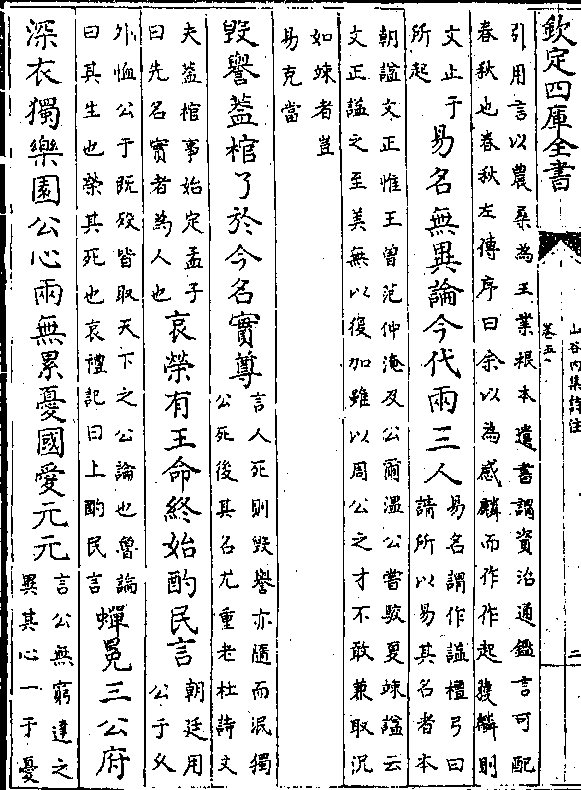 欽定四庫全書
山谷内集詩注
卷五
二
引用言以農桑為王業根本遺書謂資治通鑑言可配
春秋也春秋左傳序曰余以為感麟而作作起獲麟則
文止于
所起
易名無異論今代兩三人
易名謂作謚檀弓曰
請所以易其名者本
朝謚文正惟王曾范仲淹及公爾温公嘗駮夏竦謚云
文正謚之至美無以復加雖以周公之才不敢兼取況
如竦者豈
易克當
毁譽葢棺了於今名實尊
言人死則毁譽亦隨而泯獨
公死後其名尤重老杜詩文
夫葢棺事始定孟子
曰先名實者為人也
哀榮有王命終始酌民言
朝廷用
公于久
外恤公于既殁皆取天下之公論也魯論
曰其生也榮其死也哀禮記曰上酌民言
蟬冕三公府
深衣獨樂園公心兩無累憂國愛元元
言公無窮達之
異其心一于憂